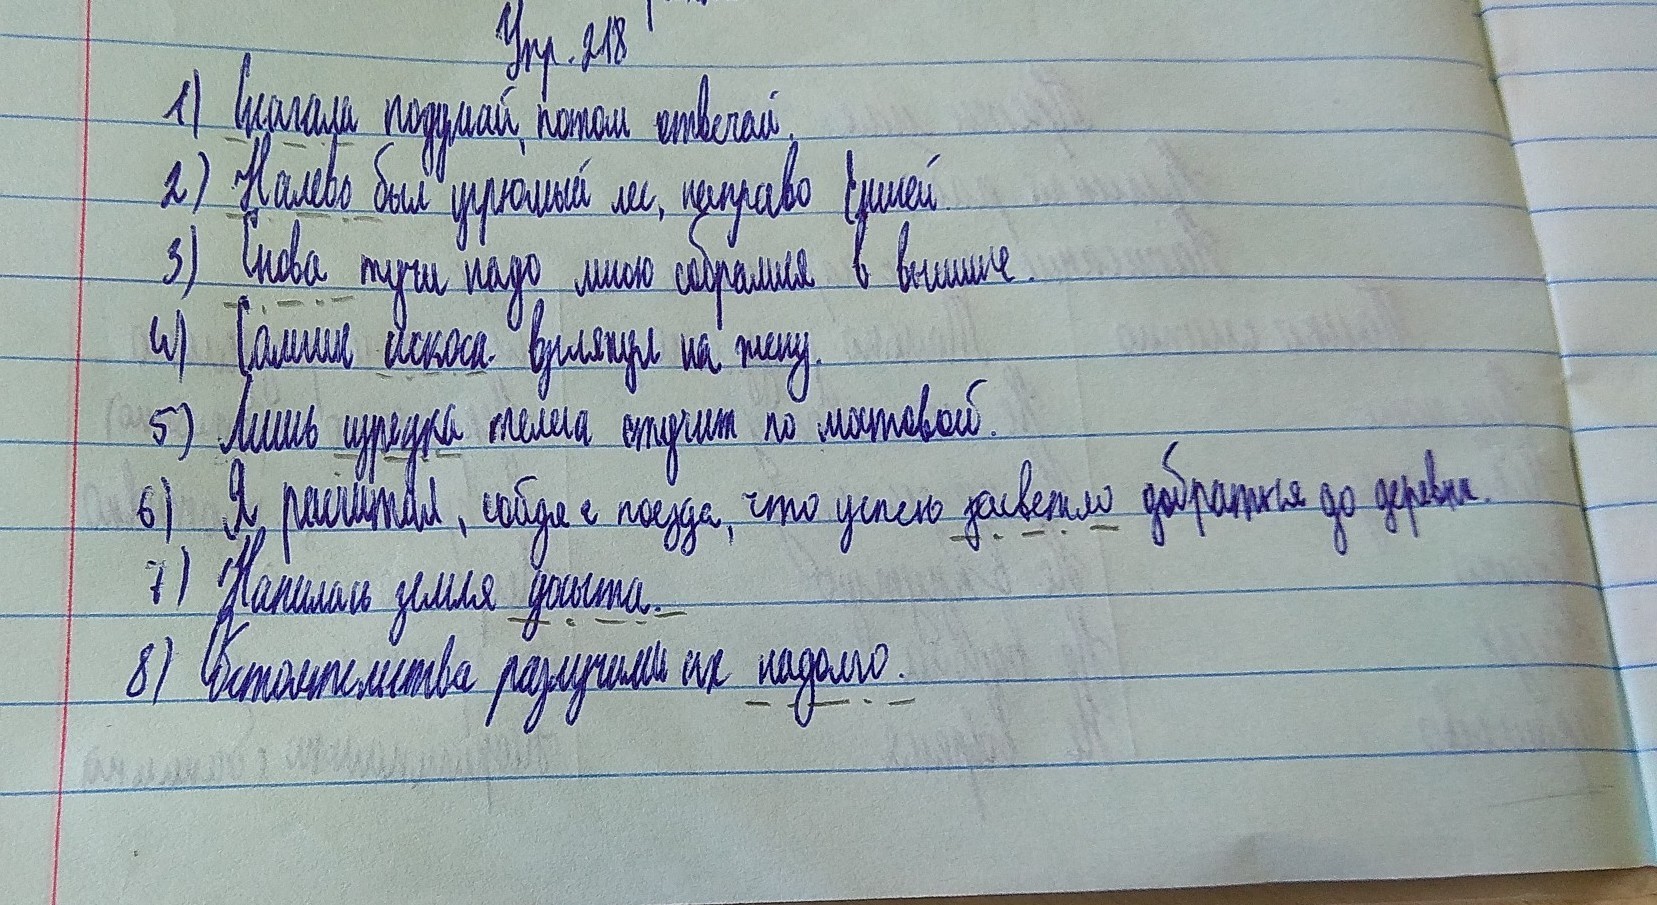 Упр. 218
1) Сначала подумай, потом отвечай.
2) Налево был угрюмый лес, направо Енисей.
3) Снова тучи надо мною собралися в вышине.
4) Самгин искоса взглянул на жену.
5) Лишь изредка телега стучит по мостовой.
6) Я расчитал, сойдя с поезда, что успею засветло добраться до деревни.
7) Напилась земля досыта.
8) Обстоятельства разлучили их надолго.